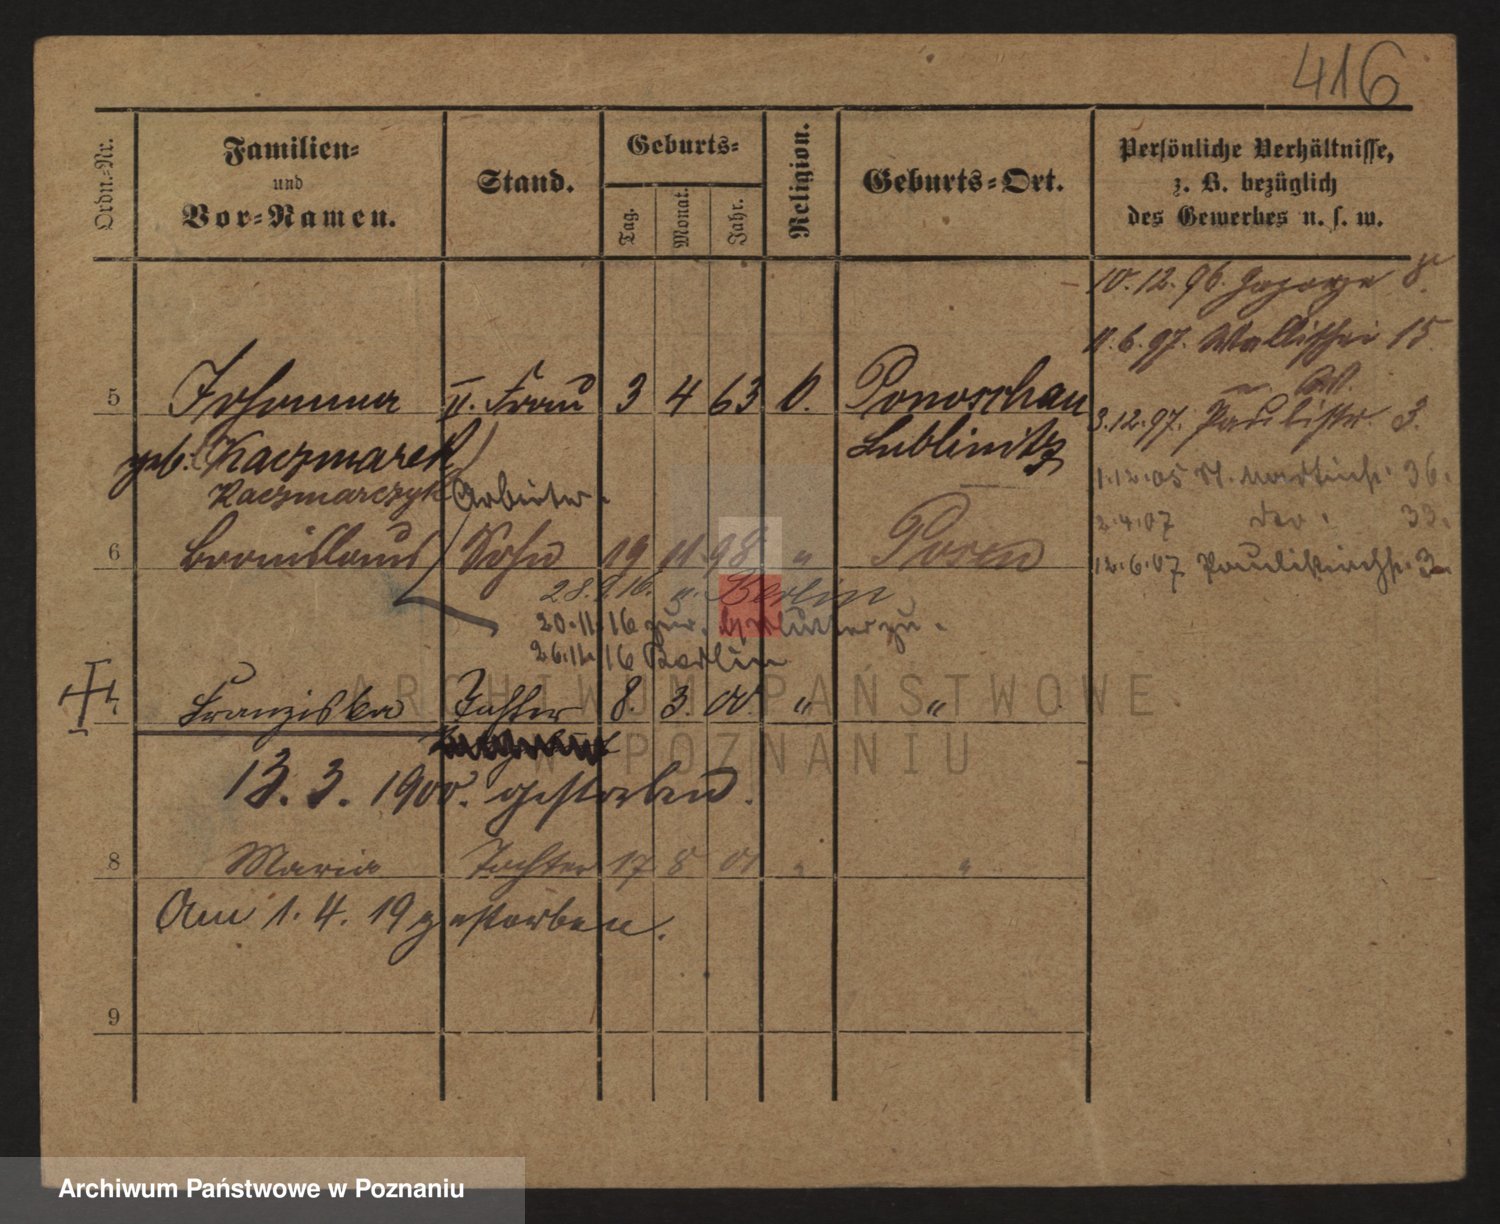 416
Ordn.-Nr.
Familien-
und
Vor-Namen.
Stand.
Geburts-
Tag.
Monat.
Jahr.
Religion.
Geburts-Ort.
Persönliche Verhältnisse,
z. B. bezüglich
des Gewerbes u. s. w.
10.12.96. 8.
11.6.97. Wallischei 15
3.12.97. Paulistr. 3.
1.12.05 St. Martinstr. 36.
2.4.07 33.
12.6.07 Paulikirchstr. 3
5 Johanna II. Frau 3 4 63 Ponoschau
geb. Kaczmarek Lublinitz
Kaczmarczyk Arbeiter.
6 Bronislaus Sohn 19 11 98 " Posen
28. 16. n. Berlin
20.11.16 zur.
26.11.16 Berlin
7. Franziska Tochter 8. 3. 00. " "
13. 3. 1900. gestorben.
8 Maria Tochter 17 8 01 " "
Am 1. 4. 19 gestorben.
9
ARCHIWUM PAŃSTWOWE
W POZNANIU
Archiwum Państwowe w Poznaniu